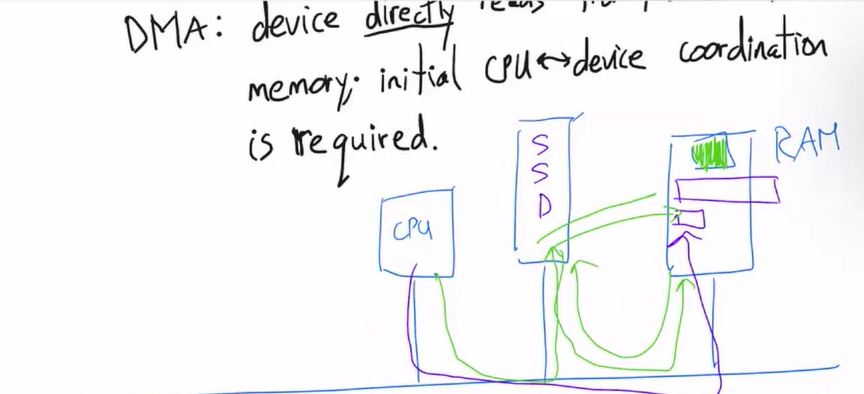 DMA: device directly
memory; initial CPU↔device coordination
is required.
SSD
RAM
CPU